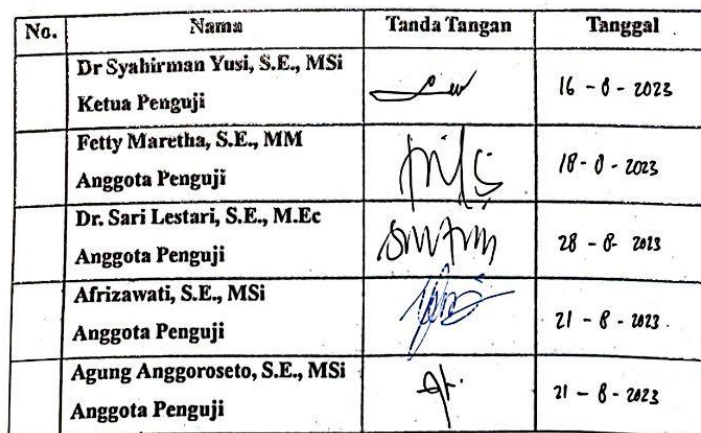 No. Nama Tanda Tangan Tanggal
Dr Syahirman Yusi, S.E., MSi
Ketua Penguji
16 - 8 - 2023
Fetty Maretha, S.E., MM
Anggota Penguji
18 - 8 - 2023
Dr. Sari Lestari, S.E., M.Ec
Anggota Penguji
28 - 8 - 2023
Afrizawati, S.E., MSi
Anggota Penguji
21 - 8 - 2023
Agung Anggoroseto, S.E., MSi
Anggota Penguji
21 - 8 - 2023